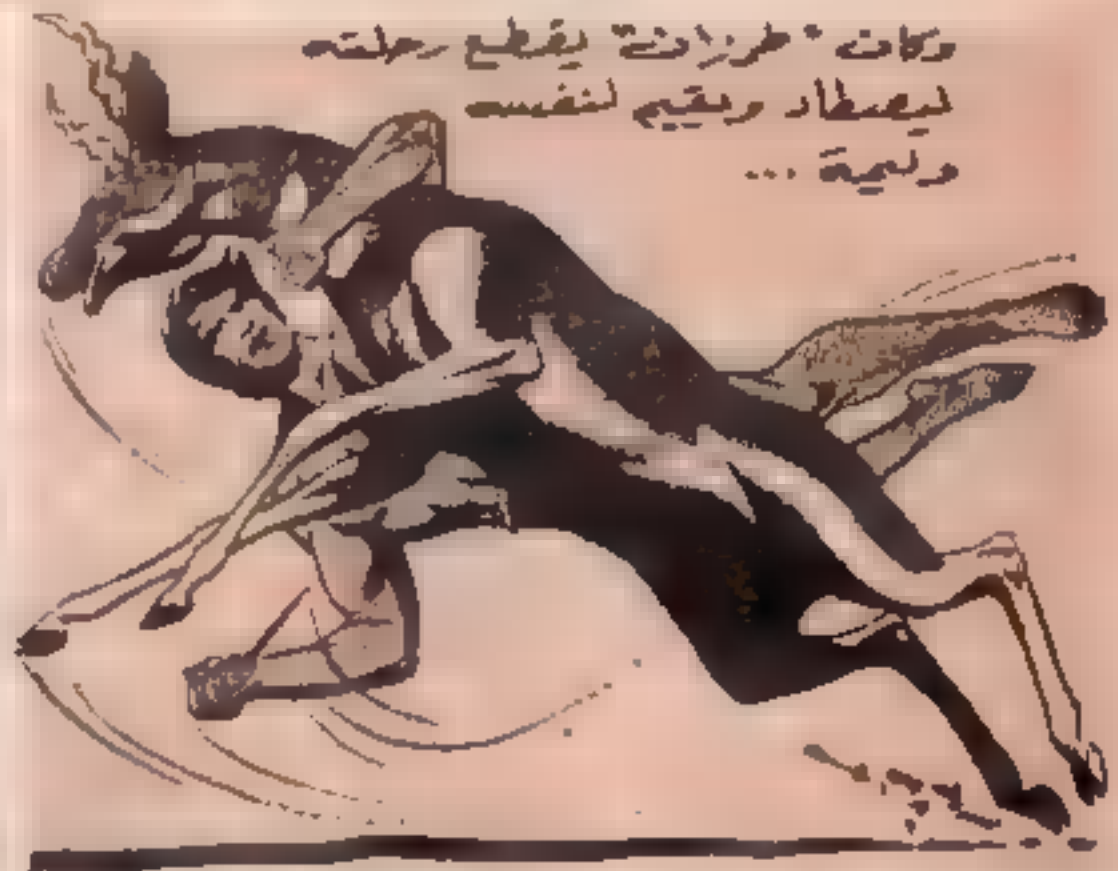 وكان "طرزان" يقطع رحلته
ليصطاد ويقيم لنفسه
وليمة ...